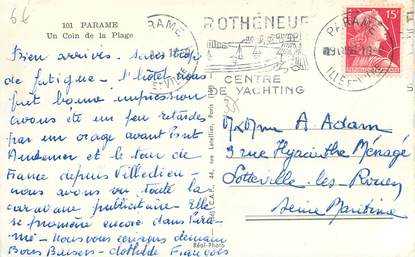 66
101 PARAME
Un Coin de la Plage
PARAME
ROTHÉNEUF
CENTRE
DE YACHTING
PARAME
ILLE-ET-VILAINE
15F
Bien arrivés. Sans trop
de fatigue. L'hôtel nous
fait bonne impression
avons été un peu retardés
par un orage avant Pont
Audemer et le tour de
France depuis Villedieu
nous avons vu toute la
caravane publicitaire. Elle
se promène encore dans Para-
mé - Nous vous écrirons demain
Bons Baisers - Clothilde François
Réel-Photo
38
M et Mme A. Adam
3 rue Hyacinthe Ménagé
Sotteville-les-Rouen
Seine Maritime